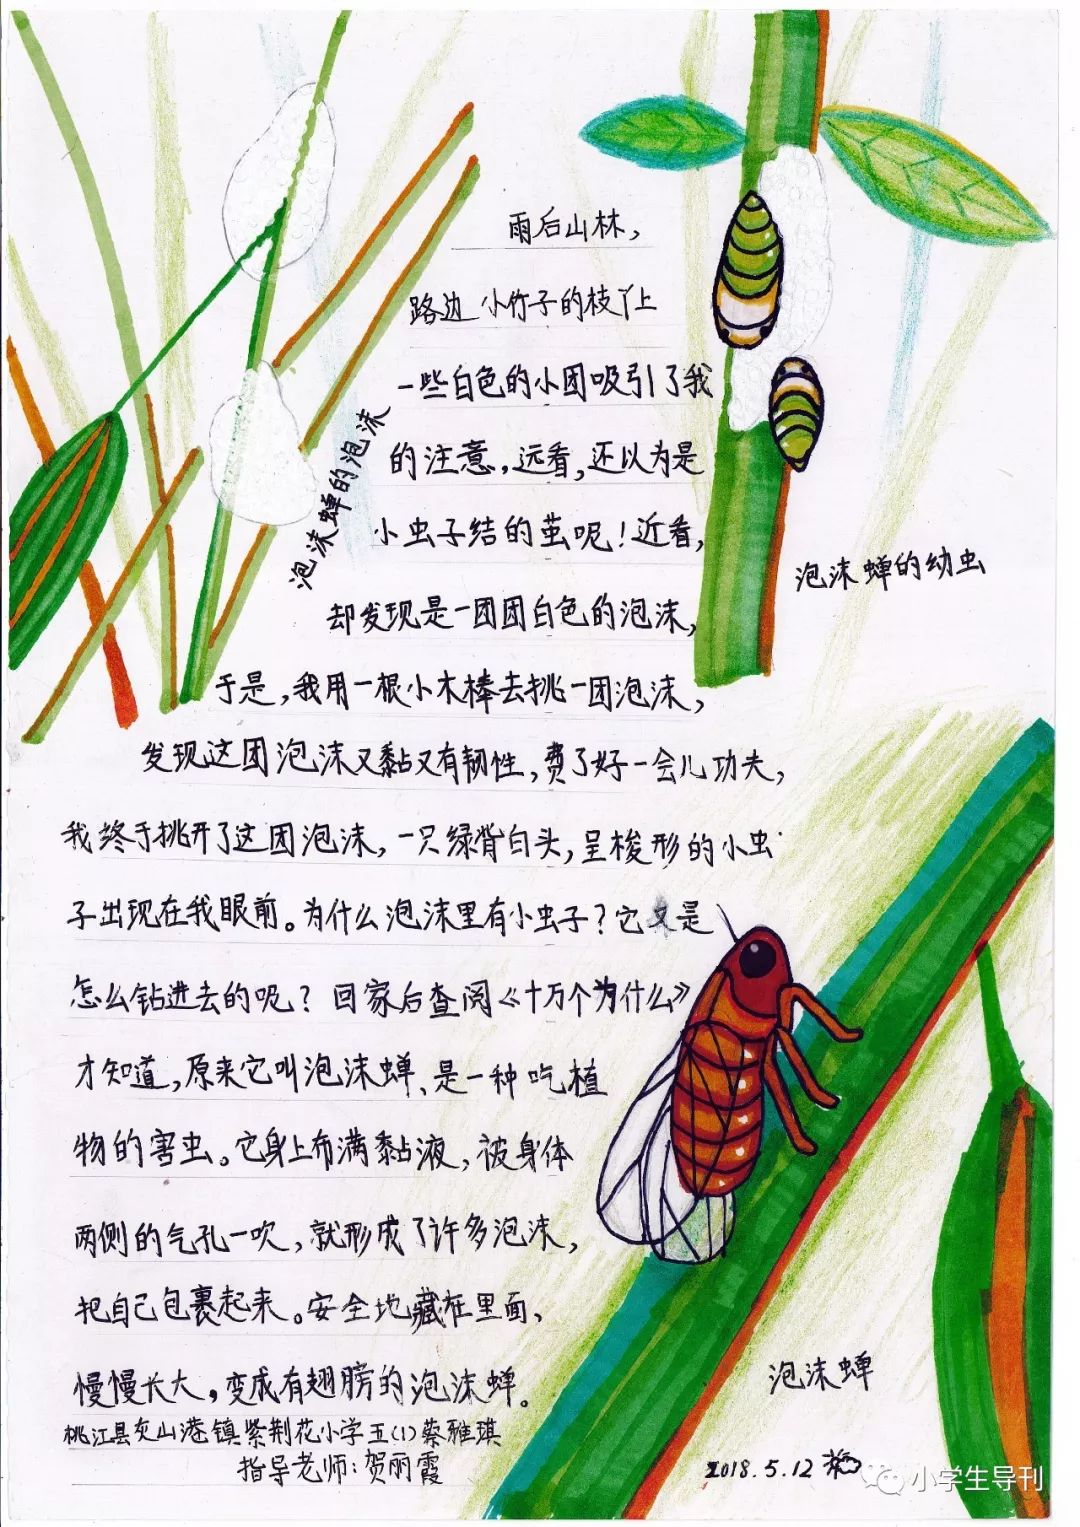 雨后山林，
路边小竹子的枝丫上
一些白色的小团吸引了我
的注意，远看，还以为是
小虫子结的茧呢！近看，
却发现是一团团白色的泡沫，
于是，我用一根小木棒去挑一团泡沫，
发现这团泡沫又黏又有韧性，费了好一会儿功夫，
我终于挑开了这团泡沫，一只绿背白头，呈梭形的小虫
子出现在我眼前。为什么泡沫里有小虫子？它又是
怎么钻进去的呢？回家后查阅《十万个为什么》
才知道，原来它叫泡沫蝉、是一种吃植
物的害虫。它身上布满黏液，被身体
两侧的气孔一吹，就形成了许多泡沫，
把自己包裹起来。安全地藏在里面、
慢慢长大，变成有翅膀的泡沫蝉。
桃江县灰山港镇紫荆花小学五(1)蔡雅琪
指导老师：贺丽霞
泡沫蝉的泡沫
泡沫蝉的幼虫
泡沫蝉
2018.5.12
小学生导刊